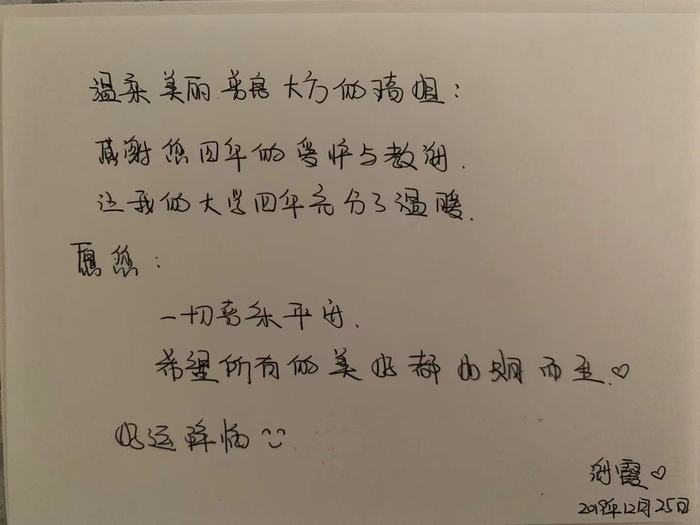 温柔美丽善良大方的琦姐：
感谢您四年的爱怜与教诲.
让我的大学四年充分了温暖.
愿您：
一切喜乐平安.
希望所有的美好都如期而至.♡
好运降临
海霞♡
2018年12月25日